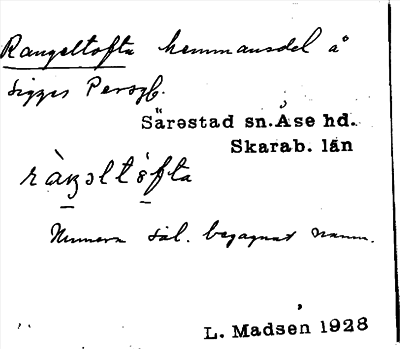 Rangeltofta hemmansdel å
Sigges Persgb.
Särestad sn. Åse hd.
Skarab. län
ràŋəltòfta
Numera säl. begagnat namn.
L. Madsen 1928